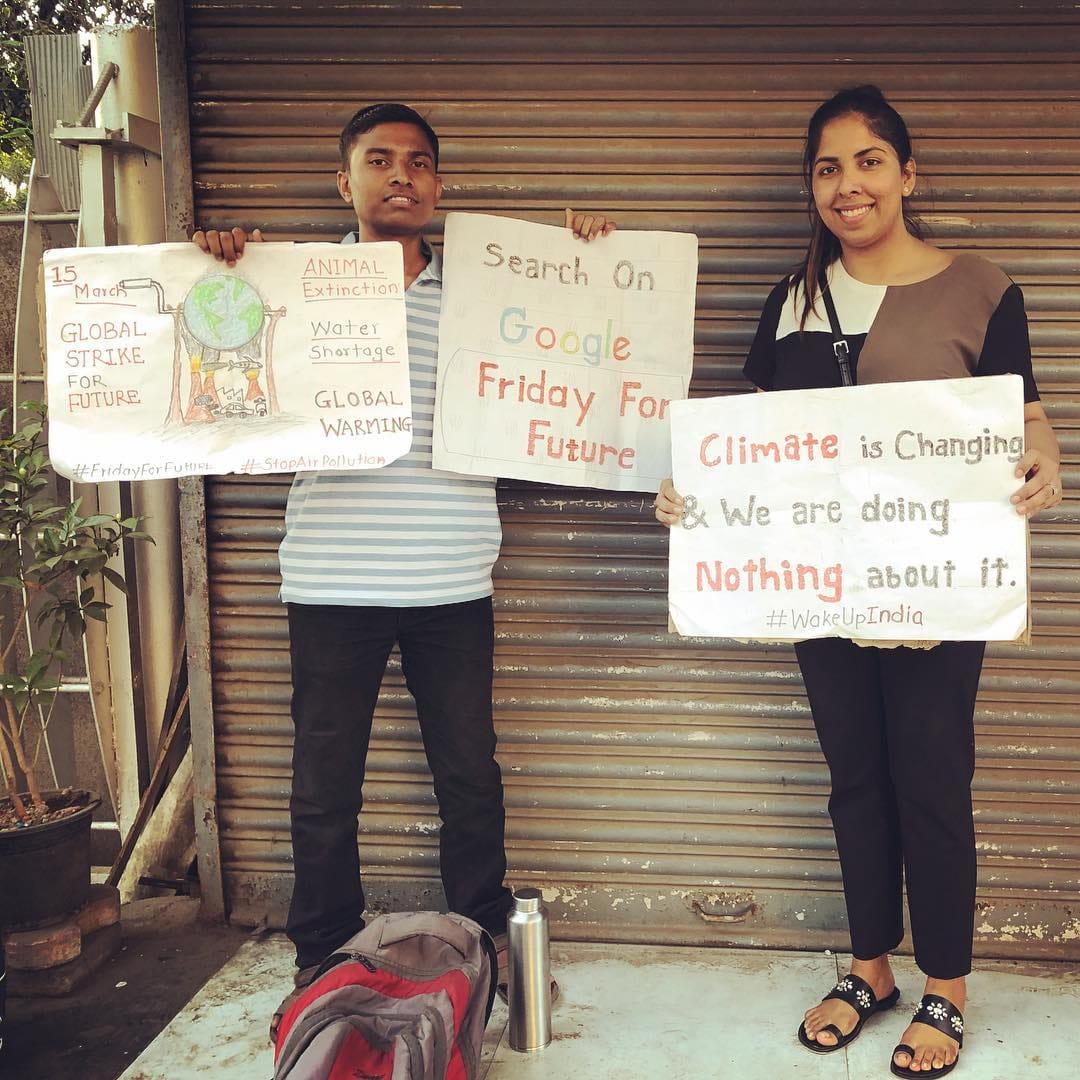 15
March
GLOBAL
STRIKE
FOR
FUTURE
ANIMAL
Extinction
Water
Shortage
GLOBAL
WARMING
#FridayForFuture #StopAirPollution
Search On
Google
Friday For
Future
Climate is Changing
& We are doing
Nothing about it.
#WakeUpIndia